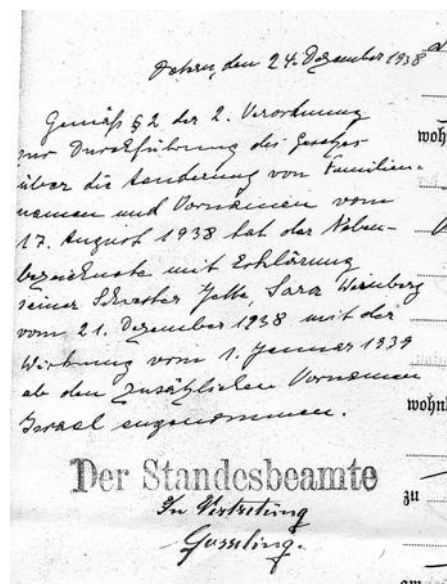 den 24. Dezember 1938
Gemäß § 2 der 2. Verordnung
zur Durchführung des Gesetzes
über die Aenderung von Familien-
namen und Vornamen vom
17. August 1938 hat der Neben-
bezeichnete mit Erklärung
seiner Schwester Jette, Sara Weinberg
vom 21. Dezember 1938 mit der
Wirkung vom 1. Januar 1939
ab den zusätzlichen Vornamen
Israel angenommen.
Der Standesbeamte
In Vertretung
woh
wohnh
zu
am